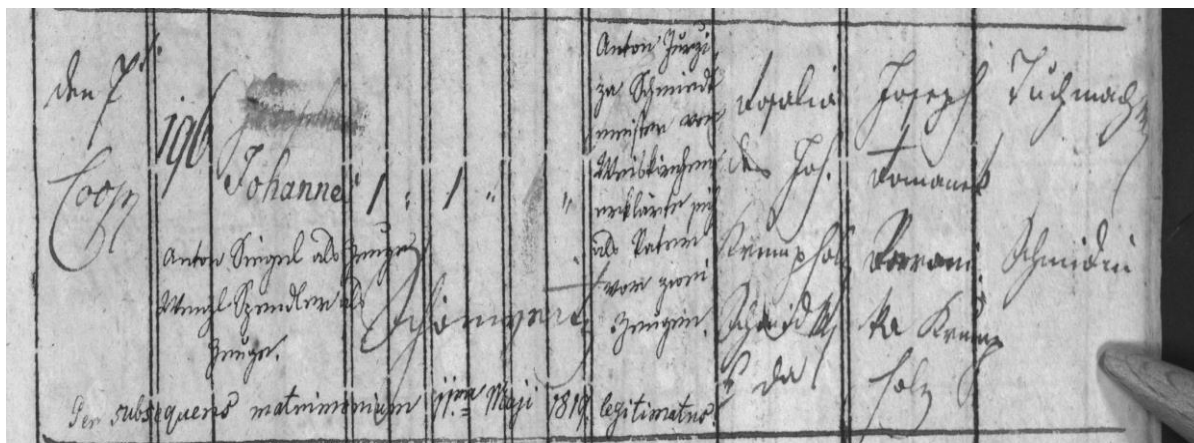 den 7t.
Coop
196
Johanne
1 " 1 " "
Anton Singul als Zeuge
Wenzl Spendler als
Zeuge.
Anton Jurzi
za Schmiedt
meister von
Weiskirchen
erklärte sich
als Vatern
vor zwei
Zeugen.
Rosalia
des Joh.
Krumpholz
Schmid
da
Joseph
Romanek
Veroni
ka Krump
holz
Tuchmach
Schmidin
Per subsequens matrimonium 11ma Maji 1819 legitimatus.